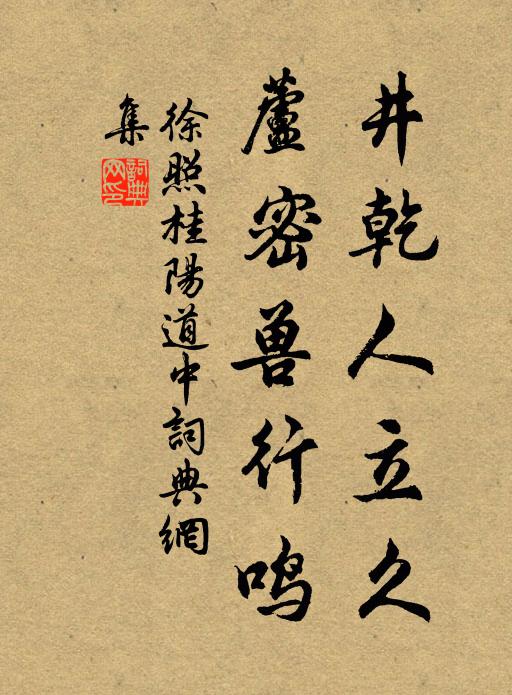 井乾人立久
蘆密兽行鸣
徐照桂陽道中詞典網
集
詞典
网印